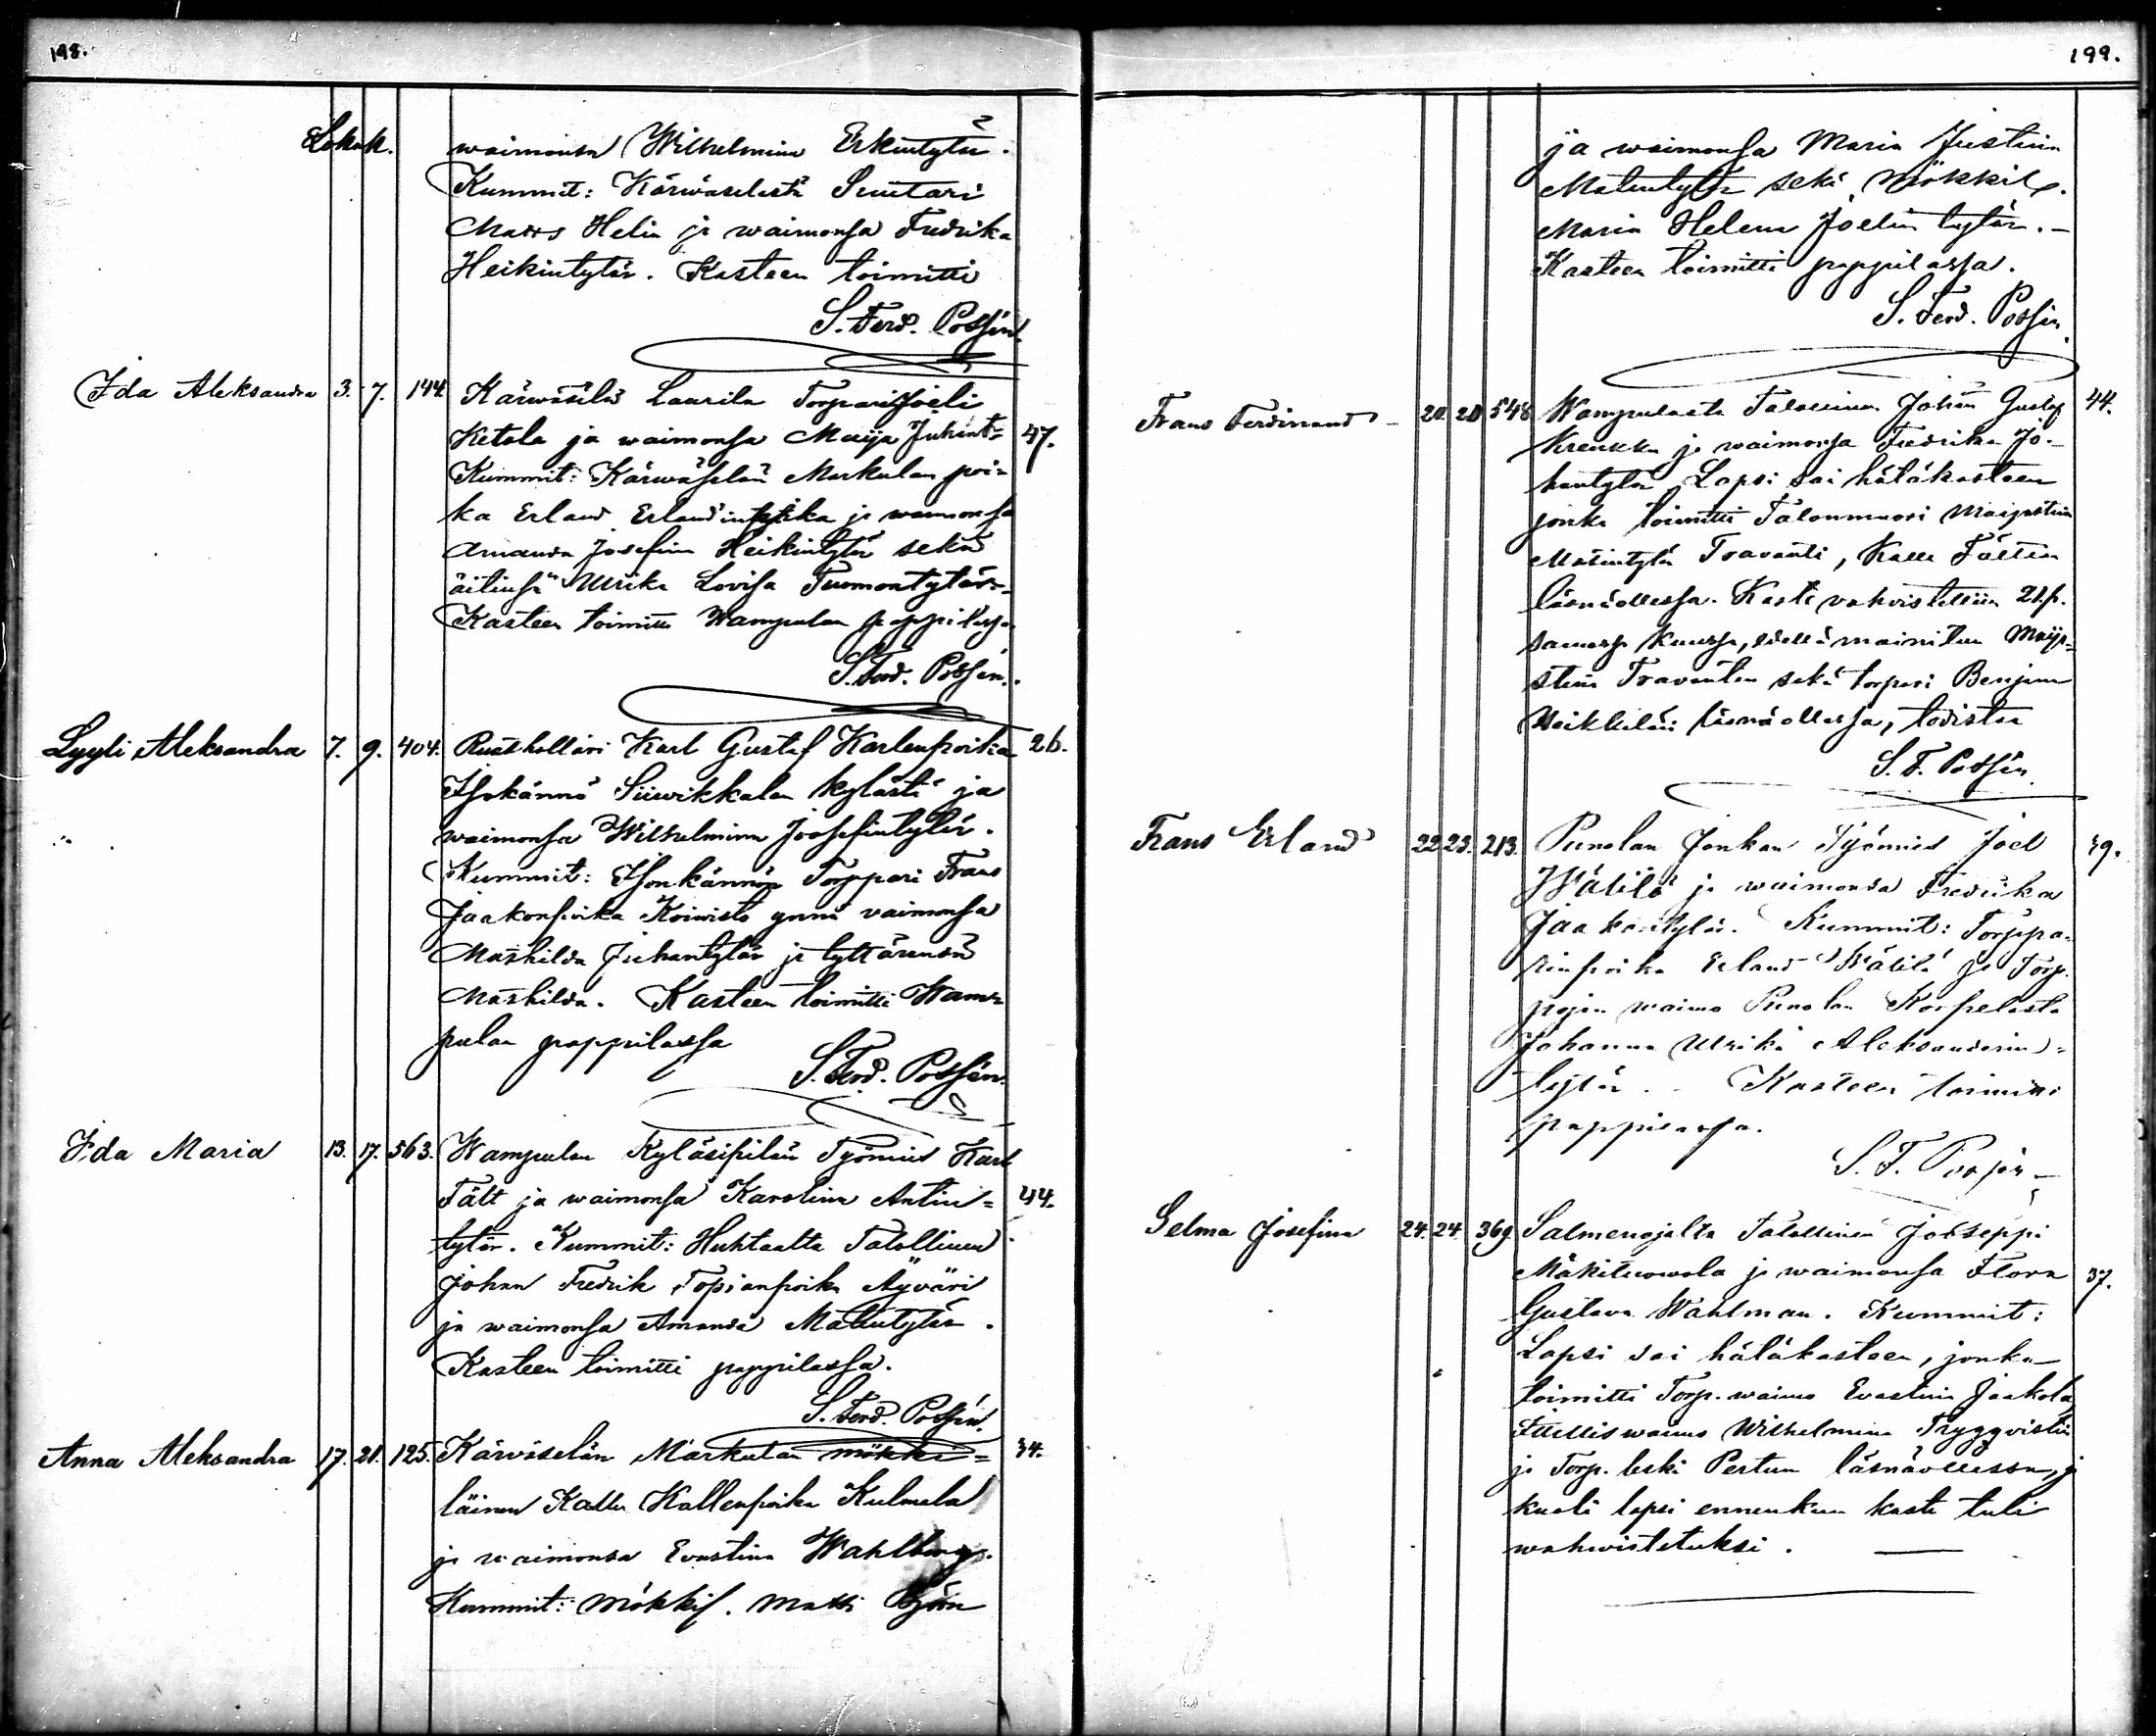 198.
Lokak.
waimonsa Wilhelmina Erkintytär.
Kummit: Kärwäselästä Suutari
Matts Helin ja waimonsa Fredrika
Heikintytär. Kasteen toimitti
S. Ferd. Possén.
Ida Aleksandra 3. 7. 144. Kärwäselä Laurila Torpari Joeli
Ketola ja waimonsa Maija Juhant= 47.
Kummit: Kärwäselän Markulan poi=
ka Erland Erlandinpoika ja waimonsa
Amanda Josefina Heikintytär sekä
äitinsä Ulrika Lovisa Tuomontytär.
Kasteen toimitti Wampulan pappilassa
S. Ferd. Possén.
Lyyli Aleksandra 7. 9. 404. Rusthollari Karl Gustaf Karlenpoika 26.
Isokännö Siiwikkalan kylästä ja
waimonsa Wilhelmina Joosefintytär.
Kummit: Isonkännön Torppari Frans
Jaakonpoika Koiwisto ynnä vaimonsa
Mathilda Juhantytär ja tyttärensä
Mathilda. Kasteen toimitti Wam=
pulan pappilassa
S. Ferd. Possén.
Ida Maria 13. 17. 563. Wampulan Kyläsipilän Työmies Karl
Fält ja waimonsa Karolina Antin= 44.
tytär. Kummit: Huhtaalta Talollinen
Johan Fredrik Topianpoika Äyväri
ja waimonsa Amanda Matintytär.
Kasteen toimitti pappilassa.
S. Ferd. Possén.
Anna Aleksandra 17. 21. 125. Kärväselän Markulan mökki= 34.
läinen Kalle Kallenpoika Kulmala
ja waimonsa Evastina Wahlberg.
Kummit: Mökkil. Matti
199.
ja waimonsa Maria Justiina
Matintytär sekä Mökkil.
Maria Helena Joelin tytär.
Kasteen toimitti pappilassa.
S. Ferd. Possén.
Frans Ferdinand 20. 21. 548. Wampulasta Talollinen Johan Gustaf 44.
Kreukka ja waimonsa Fredrika Jo-
hantytär. Lapsi sai hätäkasteen
jonka toimitti Talonmuori Maijastiina
Matintytär Travanti, Kalle Fältin
läsnäollessa. Kaste vahvistettiin 21.p.
samassa kuussa, edellämainitun Maija=
stiina Travantin sekä torpari Benjam
läsnäollessa, todistaa
S. F. Possén.
Frans Erland 22. 23. 213. Punolan Jonkan Työmies Joel 39.
Wätilä ja waimonsa Fredrika
Jaakontytär. Kummit: Torppa=
rinpoika Erland Wätilä ja Torp.
pojan waimo Punolan Korpelasta
Johanna Ulrika Aleksanderin=
tytär. Kasteen toimitti
pappilassa.
S. F. Possén
Selma Josefina 24. 24. 369. Salmenojalta Talollinen Jooseppi
Mäkituowola ja waimonsa Flora 37.
Gustava Wahlman. Kummit:
Lapsi sai hätäkasteen, jonka
toimitti Torp. waimo Evastina Jaakola
Itellis waimo Wilhelmina Tryggvistin
ja Torp. leski Pertun läsnäollessa, ja
kuoli lapsi ennenkun kaste tuli
wahwistetuksi.